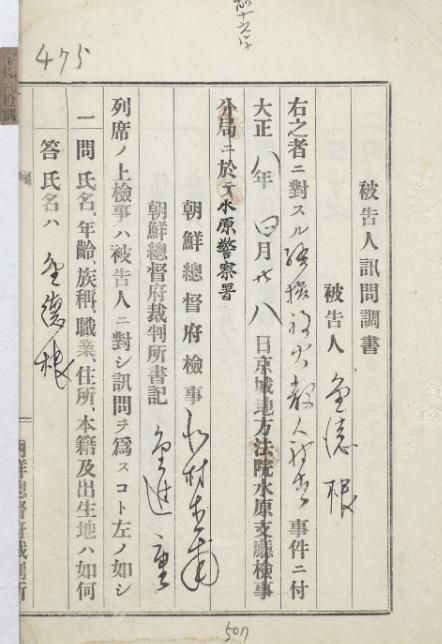 475
被告人訊問調書
被告人 金德根
右之者ニ對スル騷擾放火殺人被告事件ニ付
大正八年四月廿八日京城地方法院水原支廳檢事
分局ニ於テ水原警察署
朝鮮總督府檢事
朝鮮總督府裁判所書記
列席ノ上檢事ハ被告人ニ對シ訊問ヲ爲スコト左ノ如シ
一問 氏名、年齡、族稱、職業、住所、本籍及出生地ハ如何
答 氏名ハ 金德根
朝鮮總督府裁判所
507